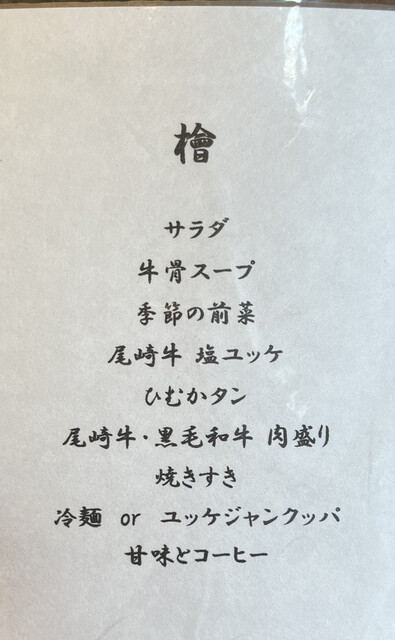 檜
サラダ
牛骨スープ
季節の前菜
尾崎牛 塩ユッケ
ひむかタン
尾崎牛・黒毛和牛 肉盛り
焼きすき
冷麺 or ユッケジャンクッパ
甘味とコーヒー